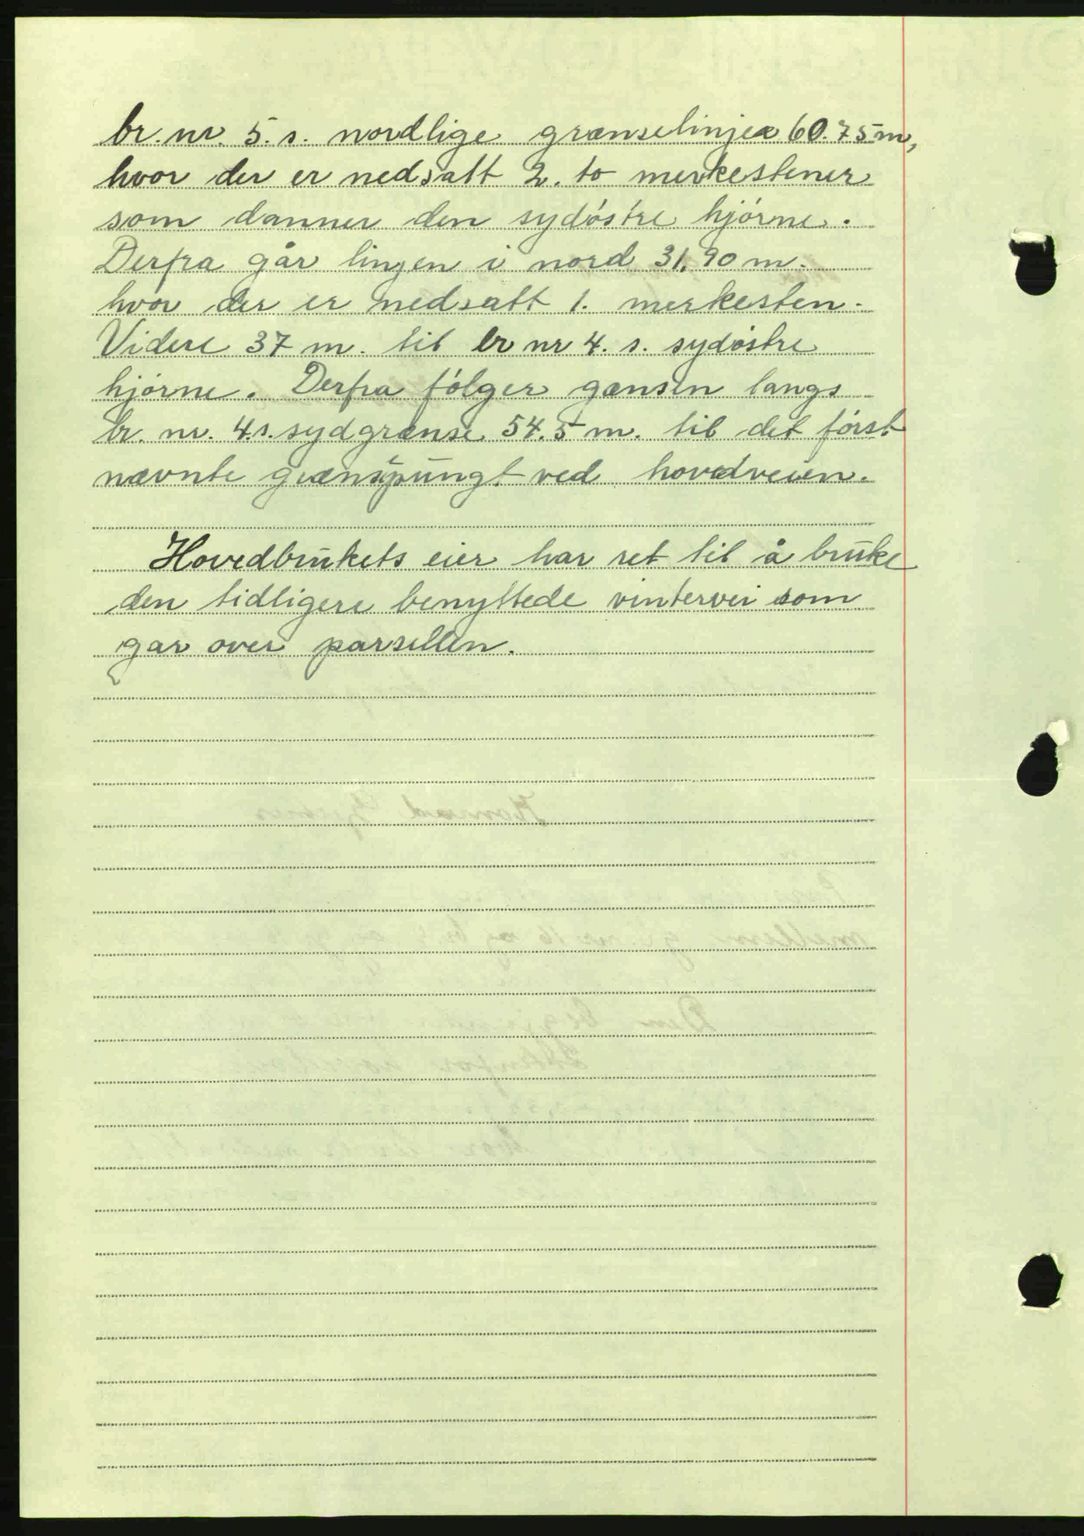 br. nr. 5. s. nordlige grænselinjen 60.75 m,
hvor der er nedsatt 2. to merkestener
som danner den sydöstre hjörne.
Derfra går linjen i nord 31,90 m.
hvor der er nedsatt 1. merkesten.
Videre 37 m. til br nr 4. s. sydöstre
hjörne. Derfra fölger gænsen langs
br. nr. 4.s. sydgrænse 54.5 m. til det först
nævnte grænspungt ved hovedveien.
Hovedbrukets eier har ret til å bruke
den tidligere benyttede vintervei som
gar over parsellen.